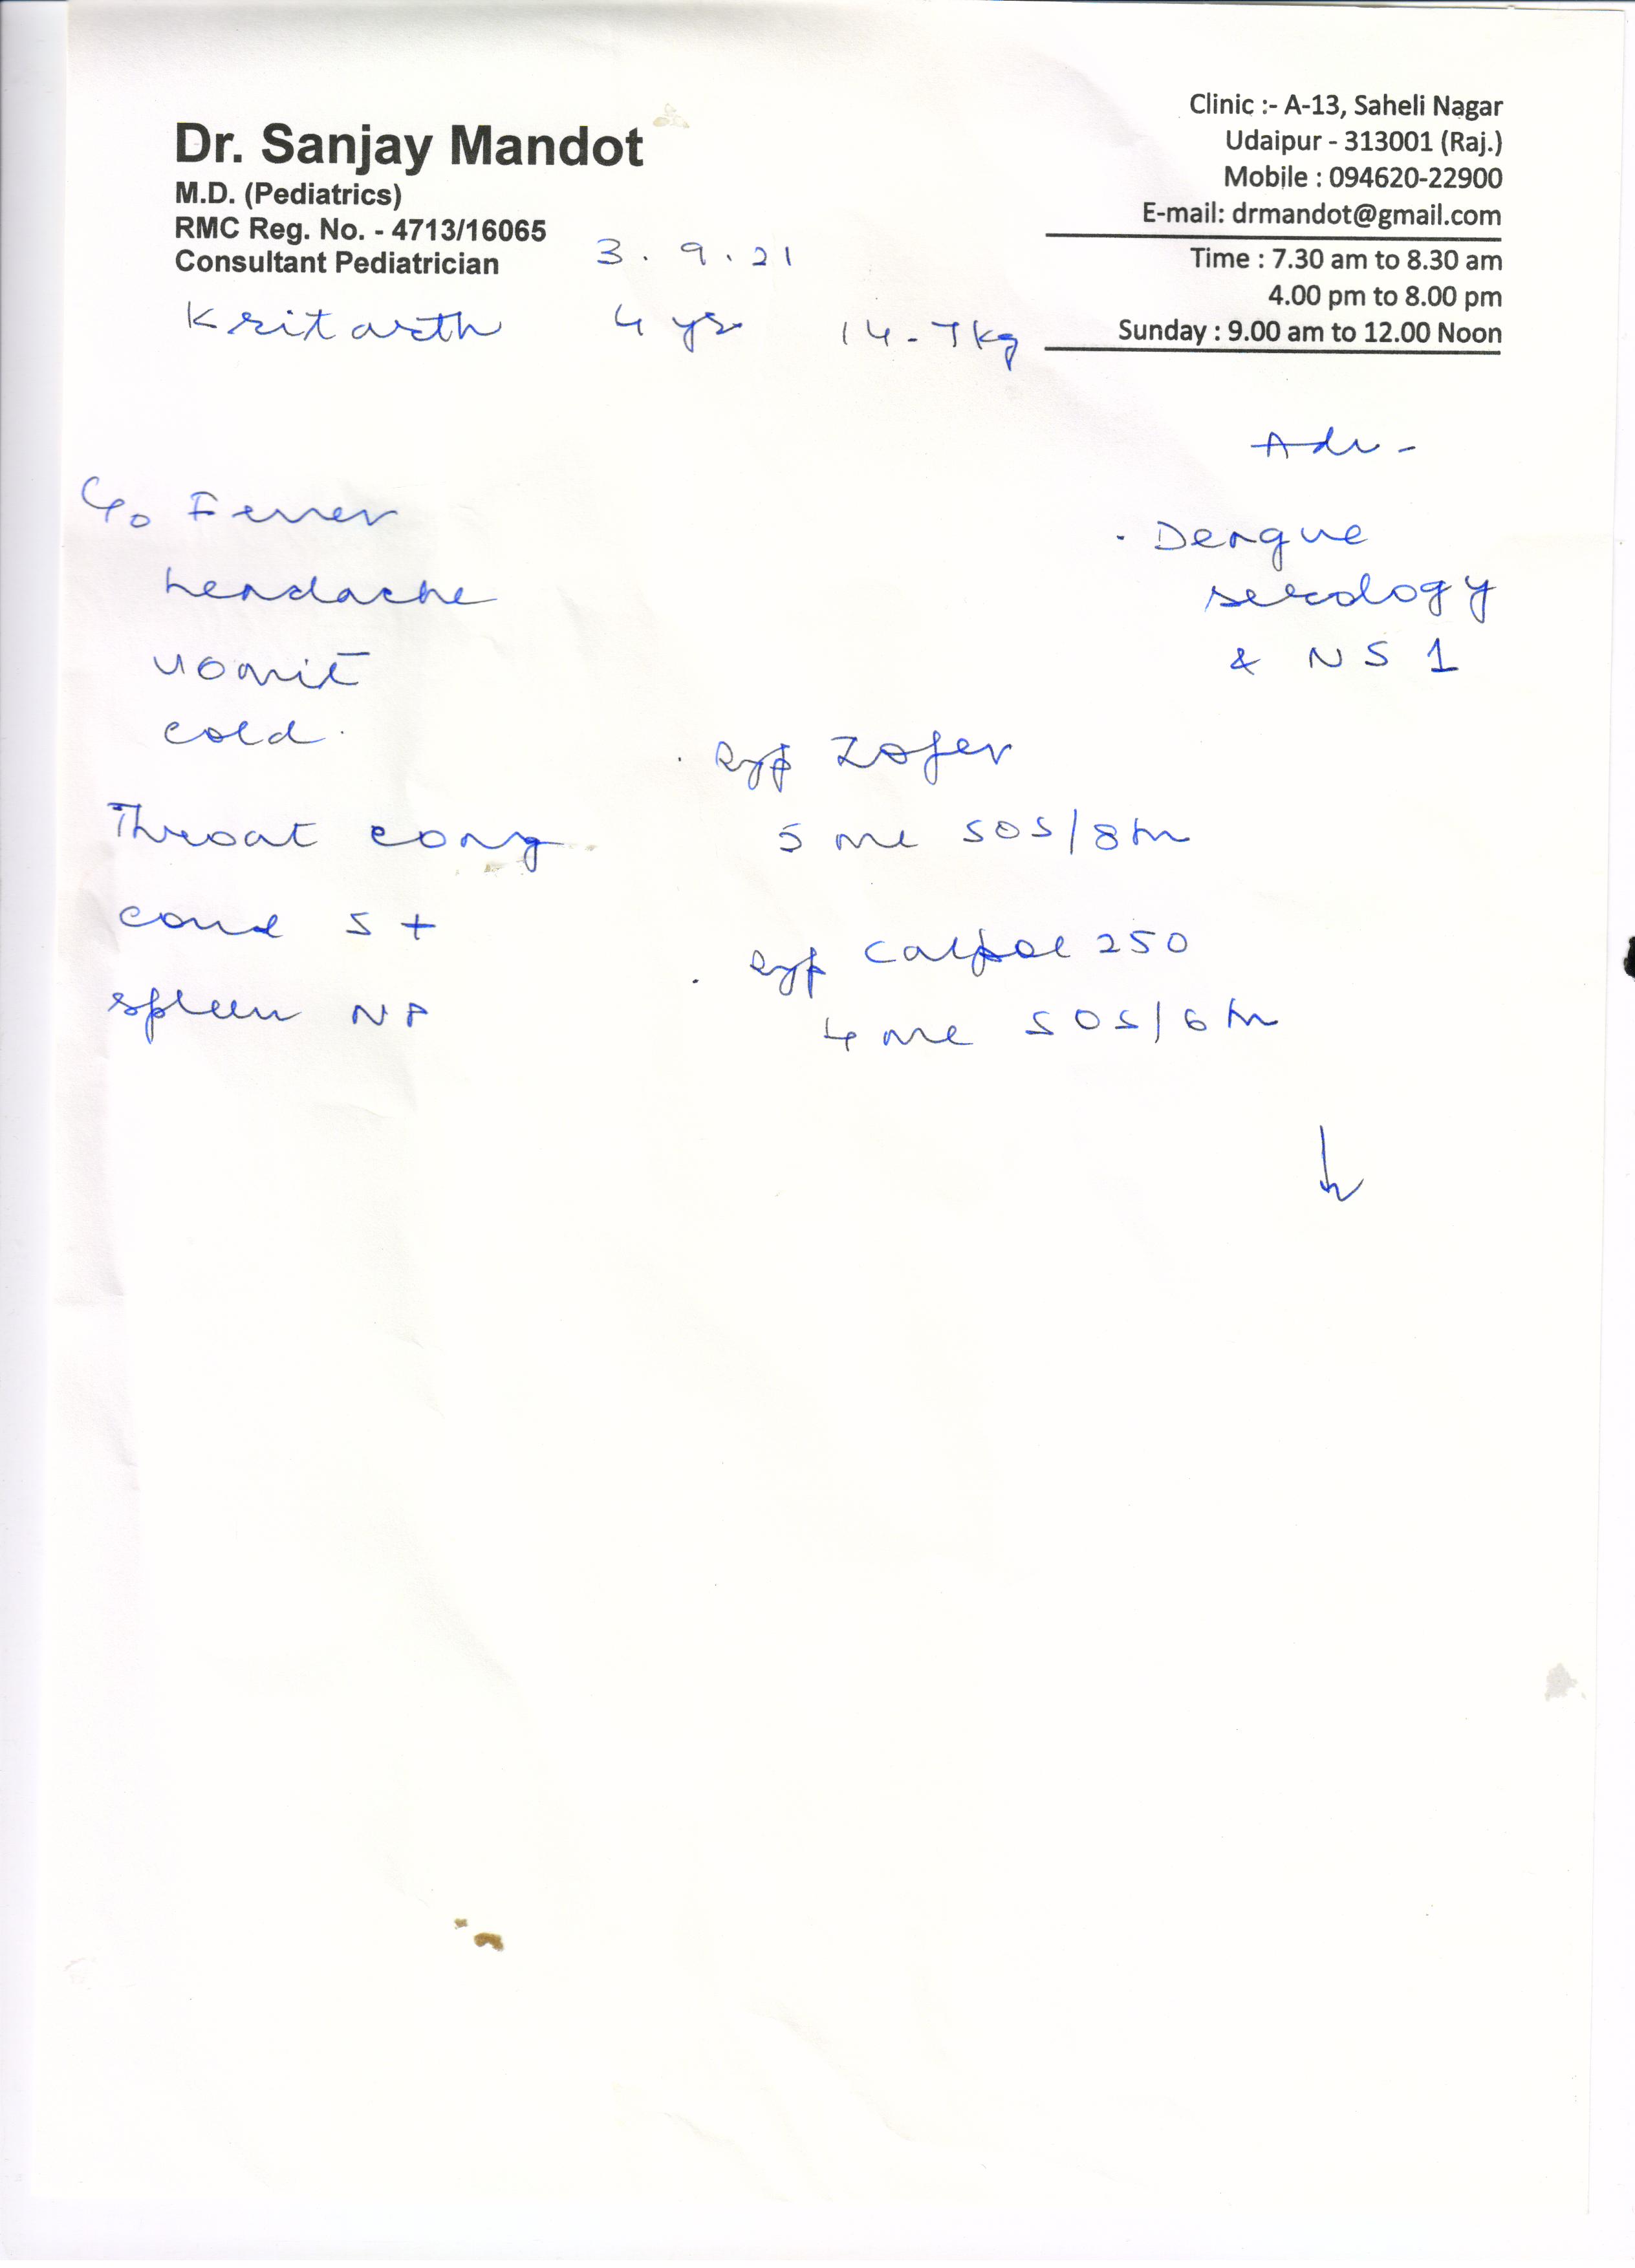 Dr. Sanjay Mandot
M.D. (Pediatrics)
RMC Reg. No. - 4713/16065
Consultant Pediatrician
Clinic :- A-13, Saheli Nagar
Udaipur - 313001 (Raj.)
Mobile : 094620-22900
E-mail: drmandot@gmail.com
Time : 7.30 am to 8.30 am
4.00 pm to 8.00 pm
Sunday : 9.00 am to 12.00 Noon
3. 9. 21
Kritarth 4 yr 14.7kg
Adv -
C/o Fever
headache
vomit
cold.
Throat cong
S +
spleen NP
. Dengue
serology
& NS 1
. Syp Zofer
5 ml SOS/8hr
. Syp Calpol 250
4 ml SOS/6hr